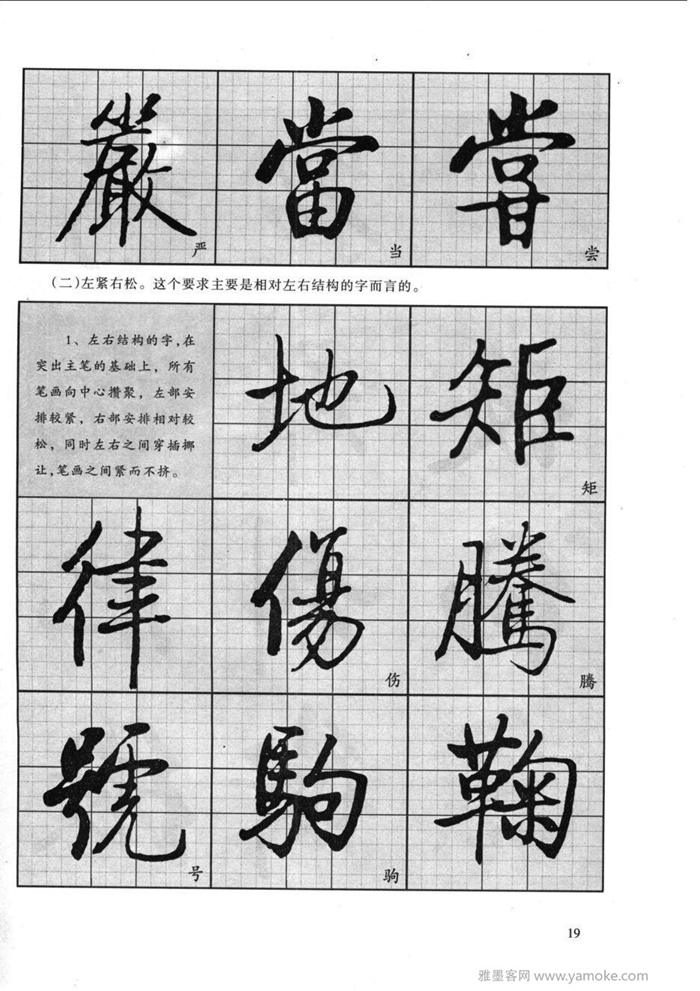 嚴 當 嘗
严 当 尝
(二)左紧右松。这个要求主要是相对左右结构的字而言的。
1、左右结构的字,在
突出主笔的基础上,所有
笔画向中心攒聚,左部安
排较紧,右部安排相对较
松,同时左右之间穿插挪
让,笔画之间紧而不挤。
地 矩
矩
律 傷 騰
伤 腾
號 駒 鞠
号 驹
19
雅墨客网 www.yamoke.com